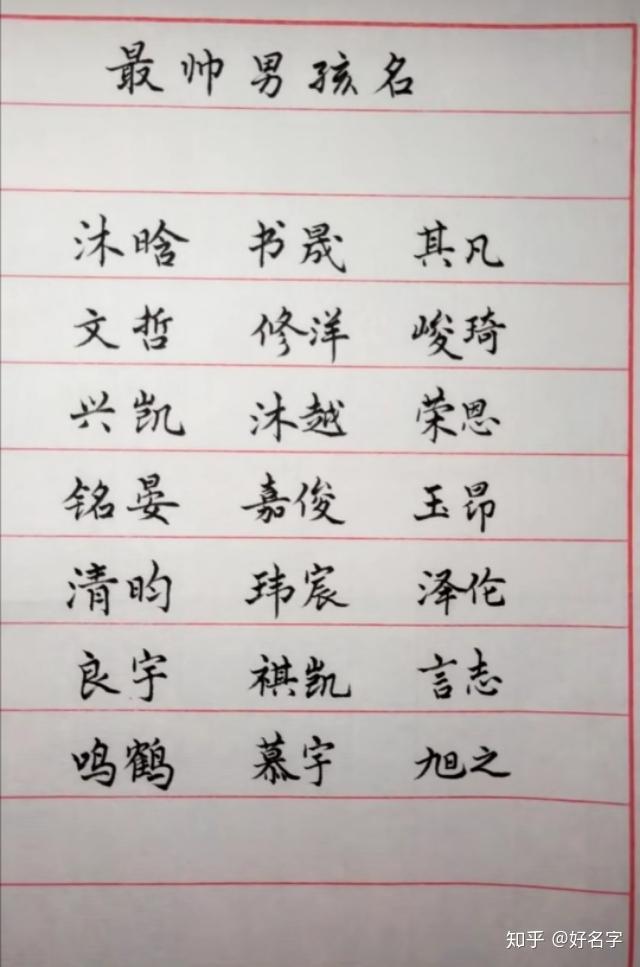 最帅男孩名
沐晗 书晟 其凡
文哲 修洋 峻琦
兴凯 沐越 荣恩
铭晏 嘉俊 玉昂
清昀 玮宸 泽伦
良宇 祺凯 言志
鸣鹤 慕宇 旭之
知乎 @好名字